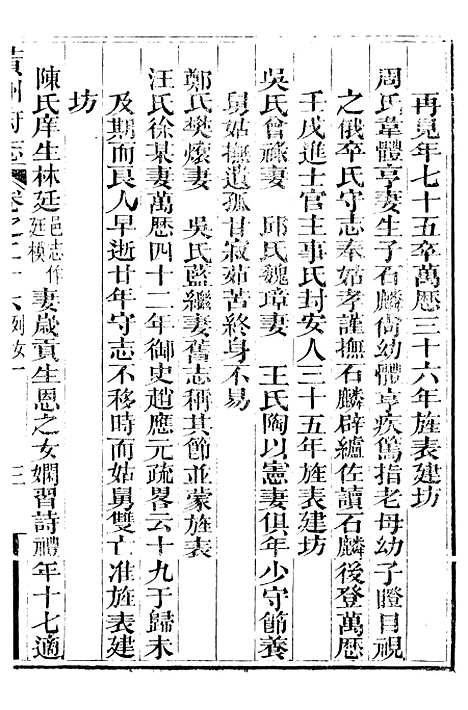 再見年七十五卒萬歷三十六年旌表建坊
周氏韋體亨妻生子石麟尙幼體亨疾篤指老母幼子瞪目視
之俄卒氏守志奉姑孝謹撫石麟辟纑佐讀石麟後登萬歷
壬戌進士官主事氏封安人三十五年旌表建坊
吳氏曾祼妻　邱氏魏璋妻　王氏陶以憲妻俱年少守節養
舅姑撫遺孤甘寂茹苦終身不易
鄭氏樊燦妻　吳氏藍繼妻舊志稱其節並蒙旌表
汪氏徐某妻萬歷四十二年御史趙應元疏畧云十九于歸未
及期而良人早逝廿年守志不移時而姑舅雙亡准旌表建
坊
陳氏庠生林廷邑志作廷模妻歲貢生恩之女嫻習詩禮年十七適
黃州府志　卷之二十六　列女一　三